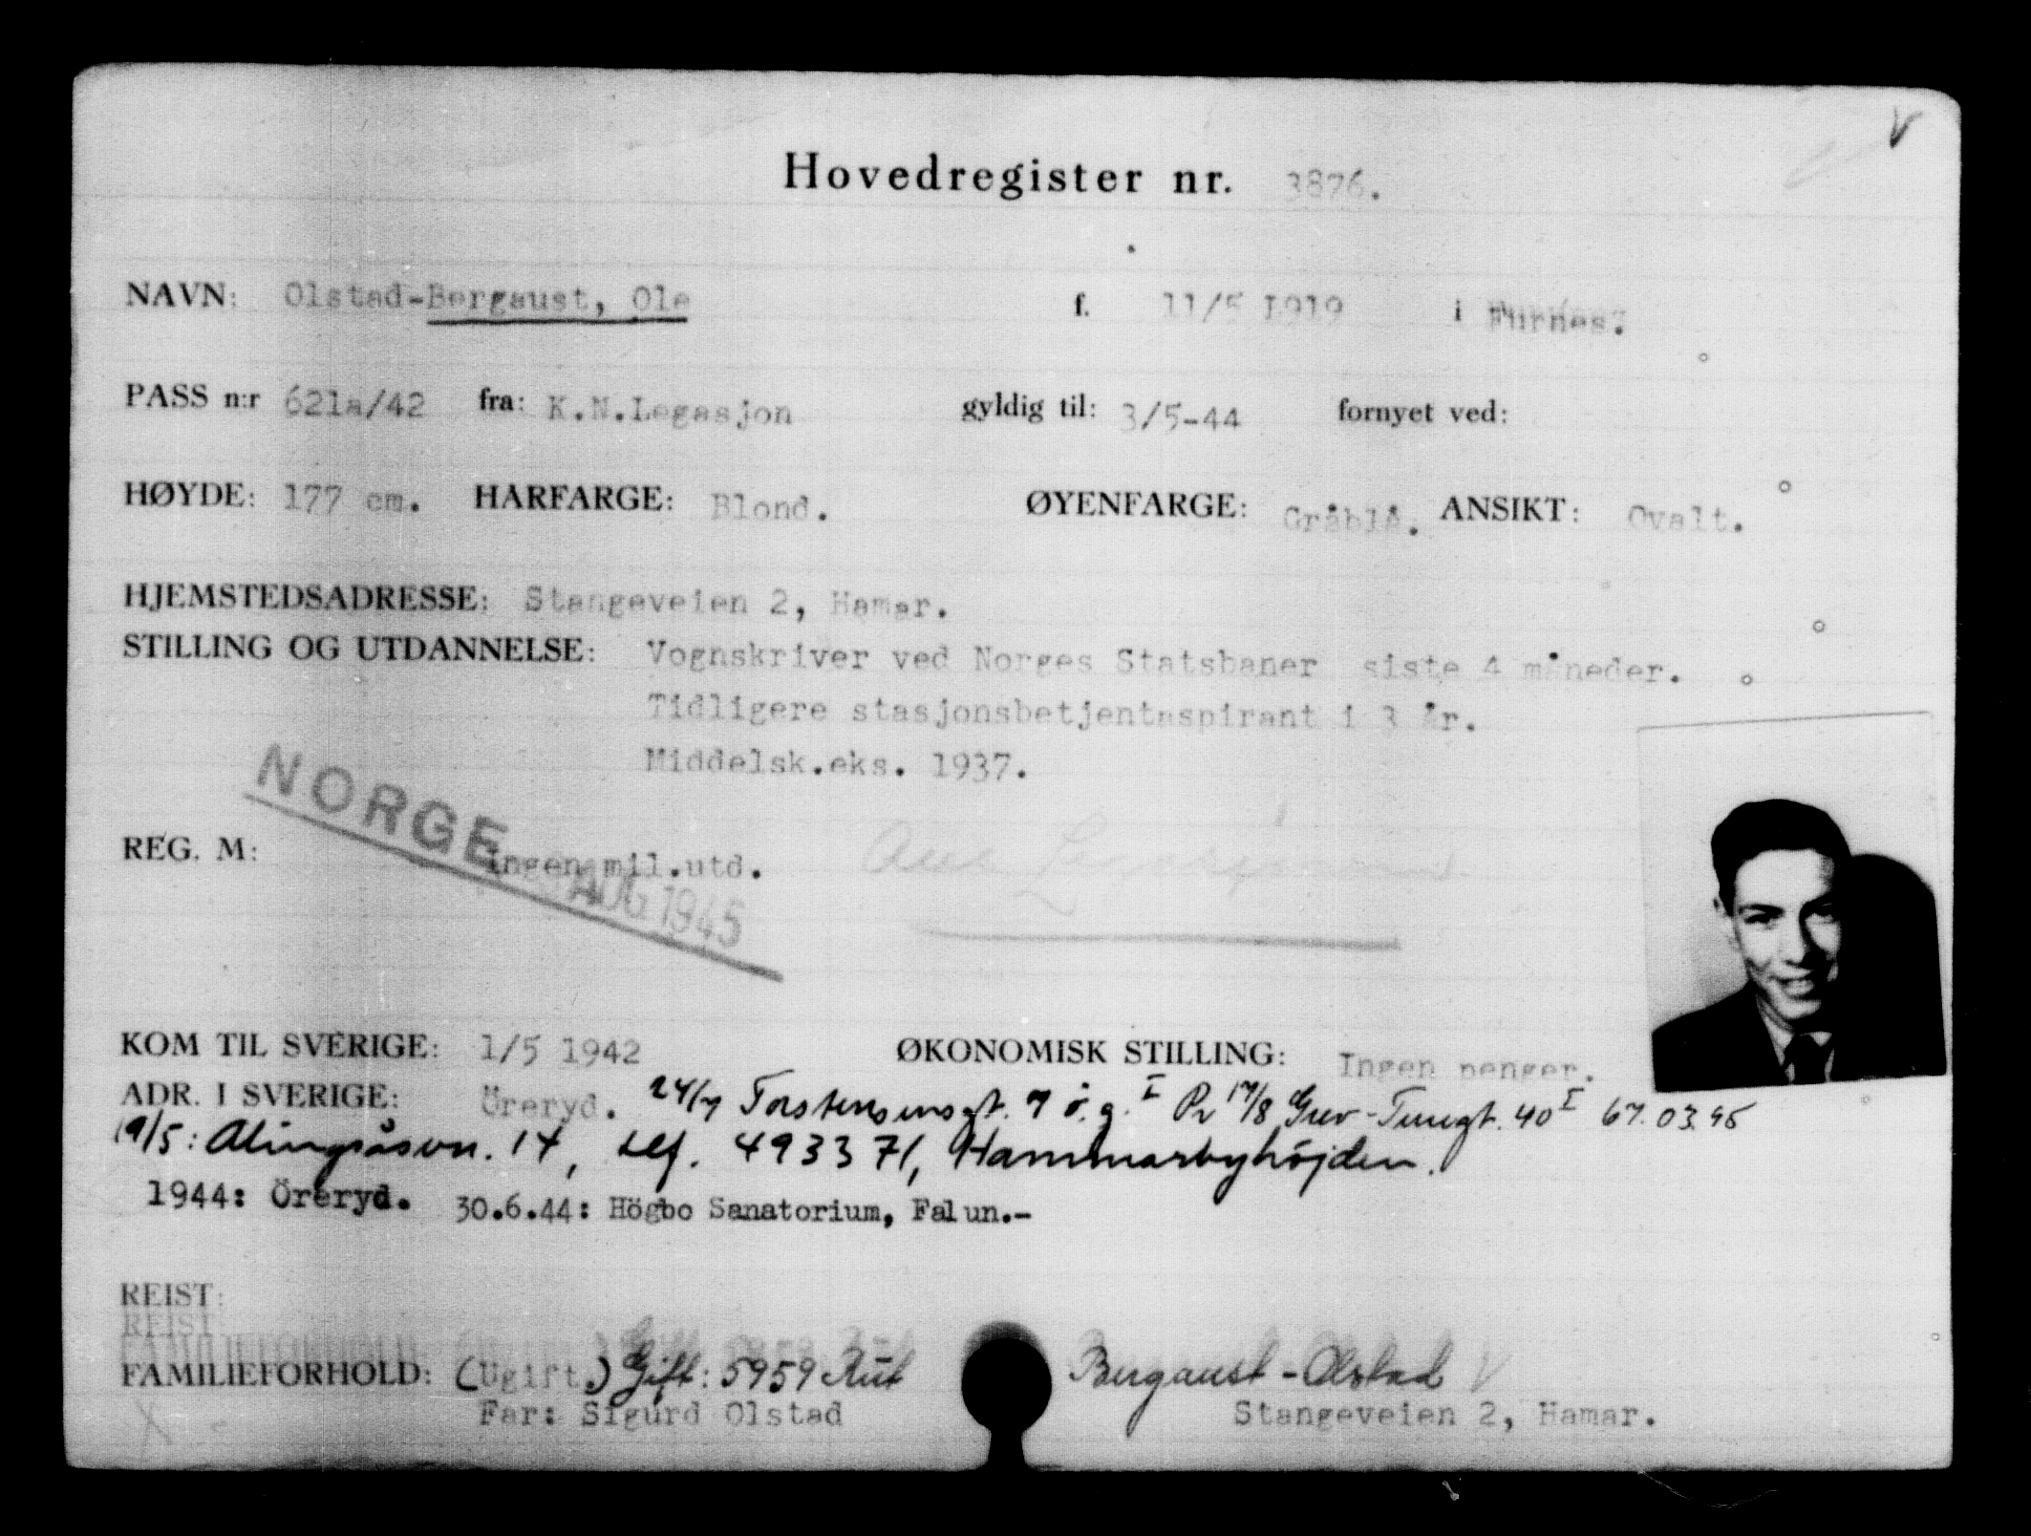 V
Hovedregister nr. 3876.
NAVN: Olstad-Bergaust, Ole f. 11/5 1919 i Furnes.
PASS n:r 621a/42 fra: K.N.Legasjon gyldig til: 3/5-44 fornyet ved:
HØYDE: 177 cm. HÅRFARGE: Blond. ØYENFARGE: Gråblå. ANSIKT: Ovalt.
HJEMSTEDSADRESSE: Stangeveien 2, Hamar.
STILLING OG UTDANNELSE: Vognskriver ved Norges Statsbaner siste 4 måneder.
Tidligere stasjonsbetjentaspirant i 3 år.
Middelsk.eks. 1937.
NORGE
REG. M: ingen mil.utd.
AUG 1945
KOM TIL SVERIGE: 1/5 1942 ØKONOMISK STILLING: Ingen penger.
ADR. I SVERIGE: Öreryd. 24/7 Torstensensgt. 7 ö.g. I 17/8 Grev-Turegt. 40 I 67.03.95
19/5: Alingsåsvn. 14, tlf. 493371, Hammarbyhöjden.
1944: Öreryd. 30.6.44: Högbo Sanatorium, Falun.-
REIST:
REIST
FAMILIEFORHOLD: (Ugift.) Gift: 5959 Rut Bergaust-Olstad V
Far: Sigurd Olstad Stangeveien 2, Hamar.